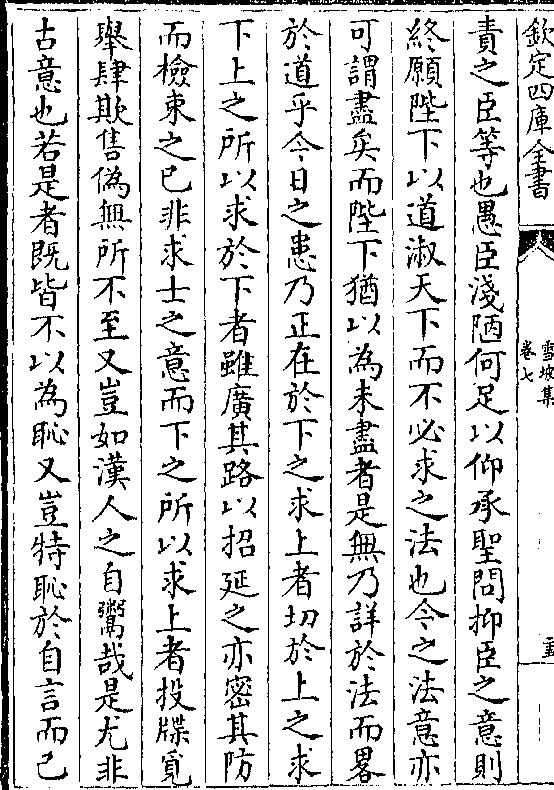 欽定四庫全書
雪坡集
卷七
責之臣等也愚臣淺陋何足以仰承聖問抑臣之意則
終願陛下以道淑天下而不必求之法也今之法意亦
可謂盡矣而陛下猶以為未盡者是無乃詳於法而畧
於道乎今日之患乃正在於下之求上者切於上之求
下上之所以求於下者雖廣其路以招延之亦密其防
而檢束之已非求士之意而下之所以求上者投牒覓
舉肆欺售偽無所不至又豈如漢人之自鬻哉是尤非
古意也若是者既皆不以為恥又豈特恥於自言而已